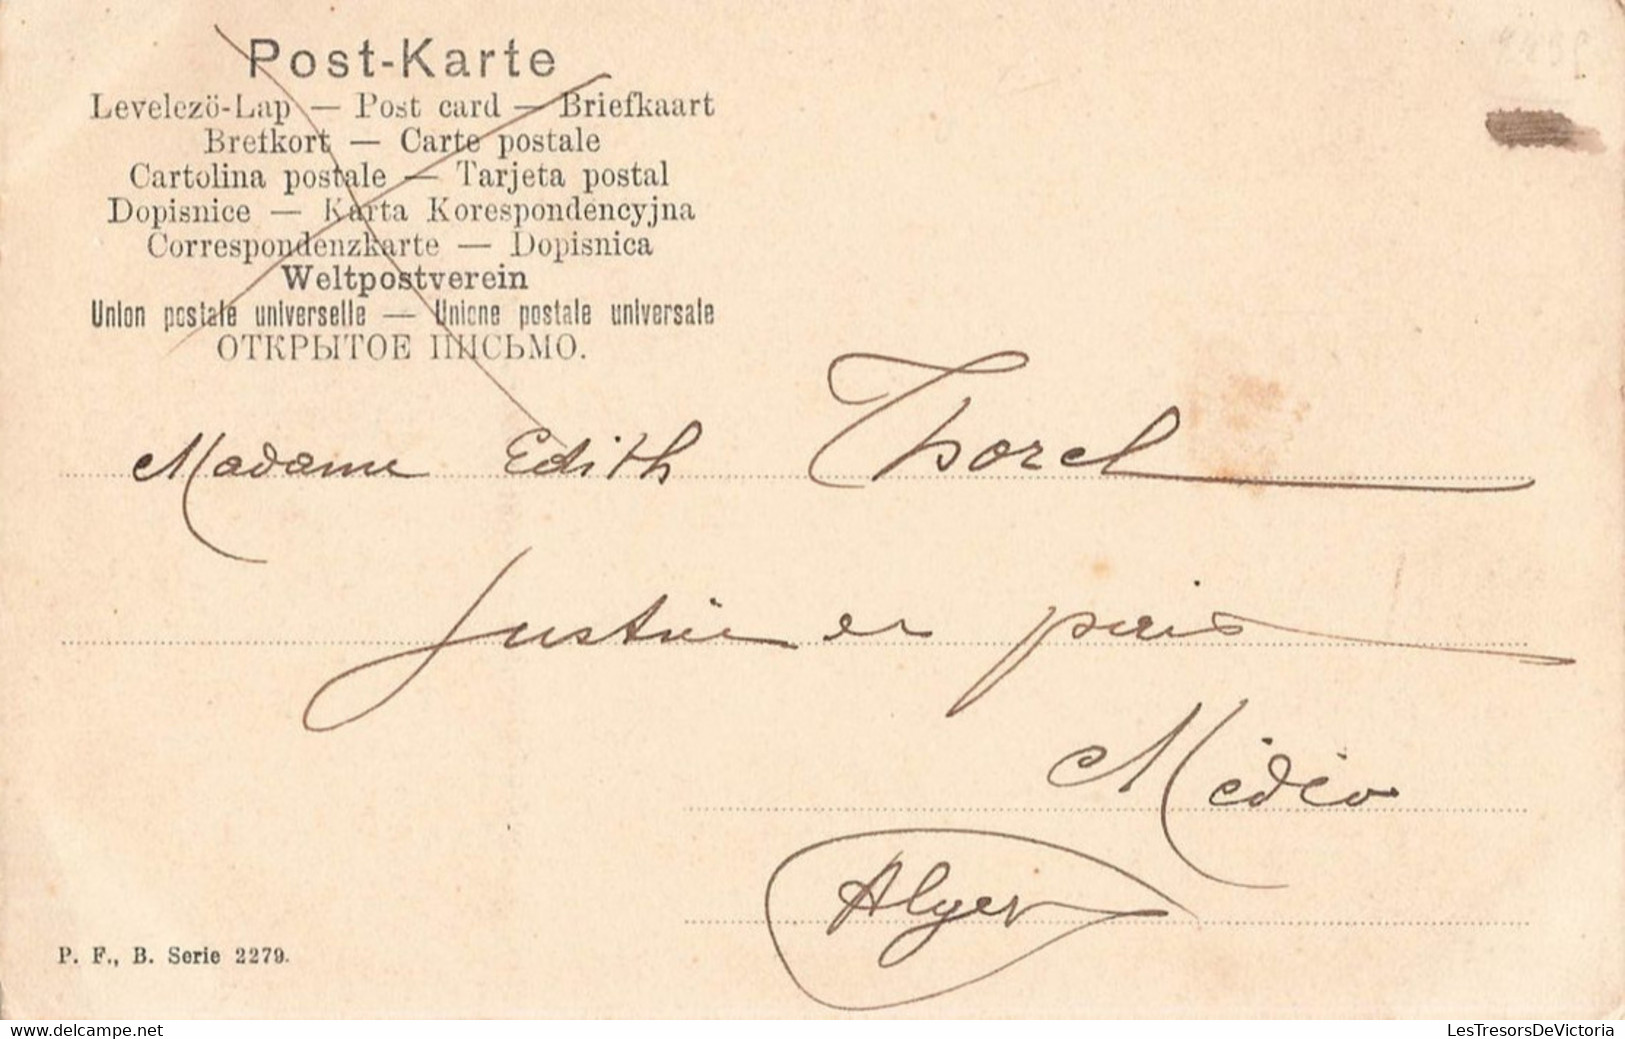 Post-Karte
Levelezö-Lap — Post card — Briefkaart
Brefkort — Carte postale
Cartolina postale — Tarjeta postal
Dopisnice — Karta Korespondencyjna
Correspondenzkarte — Dopisnica
Weltpostverein
Union postale universelle — Unione postale universale
ОТКРЫТОЕ ПИСЬМО.
Madame Edith Thorel
Justice de paix
Médéa
Alger
P. F., B. Serie 2279.
delcampe.net
LesTresorsDeVictoria